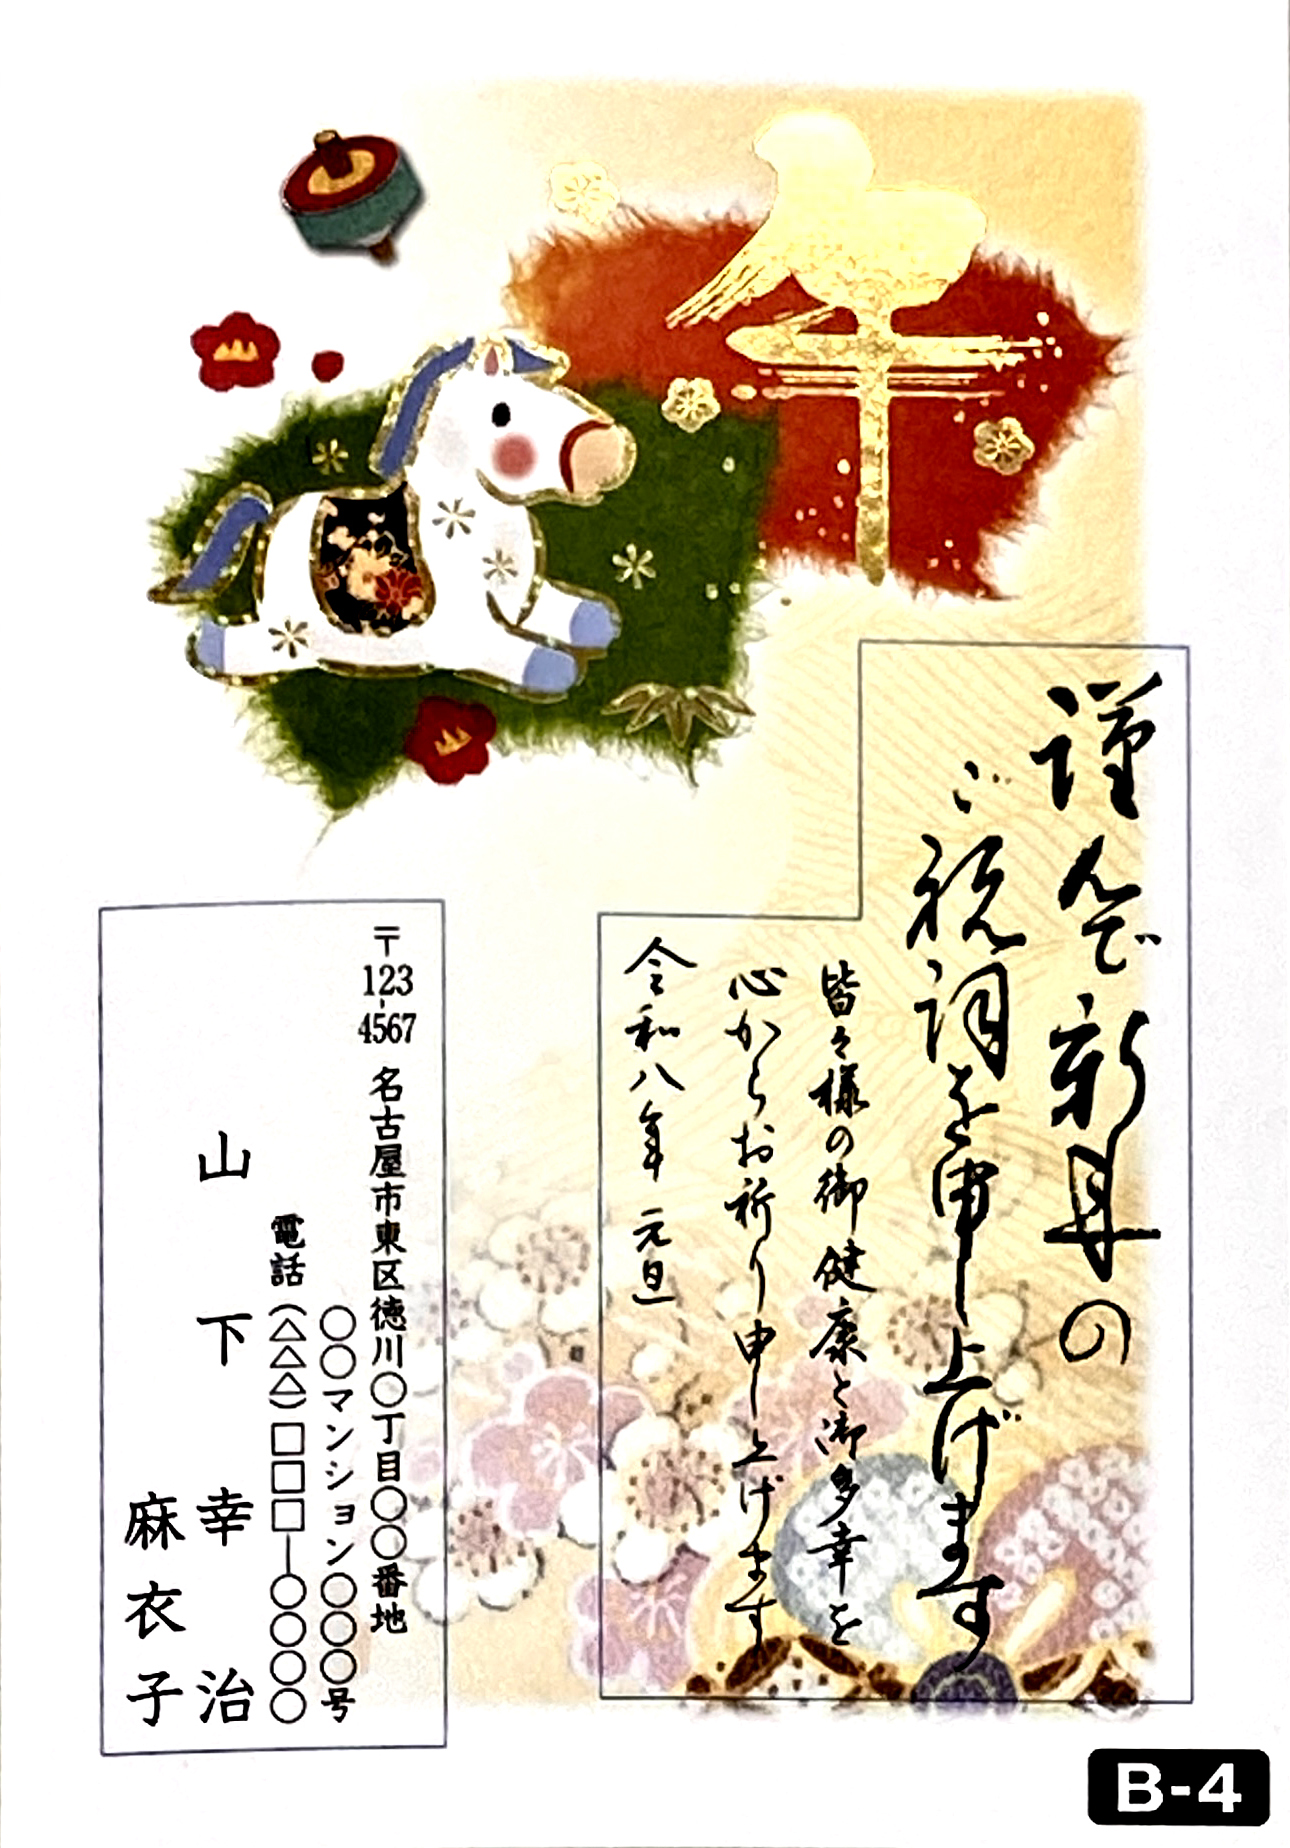 午
謹んで新年の
ご祝詞を申し上げます
皆々様の御健康と御多幸を
心からお祈り申し上げます
令和八年 元旦
〒123-4567 名古屋市東区徳川○丁目○○番地
○○マンション○○○号
電話(△△△)□□□―○○○○
山下幸治
麻衣子
B-4